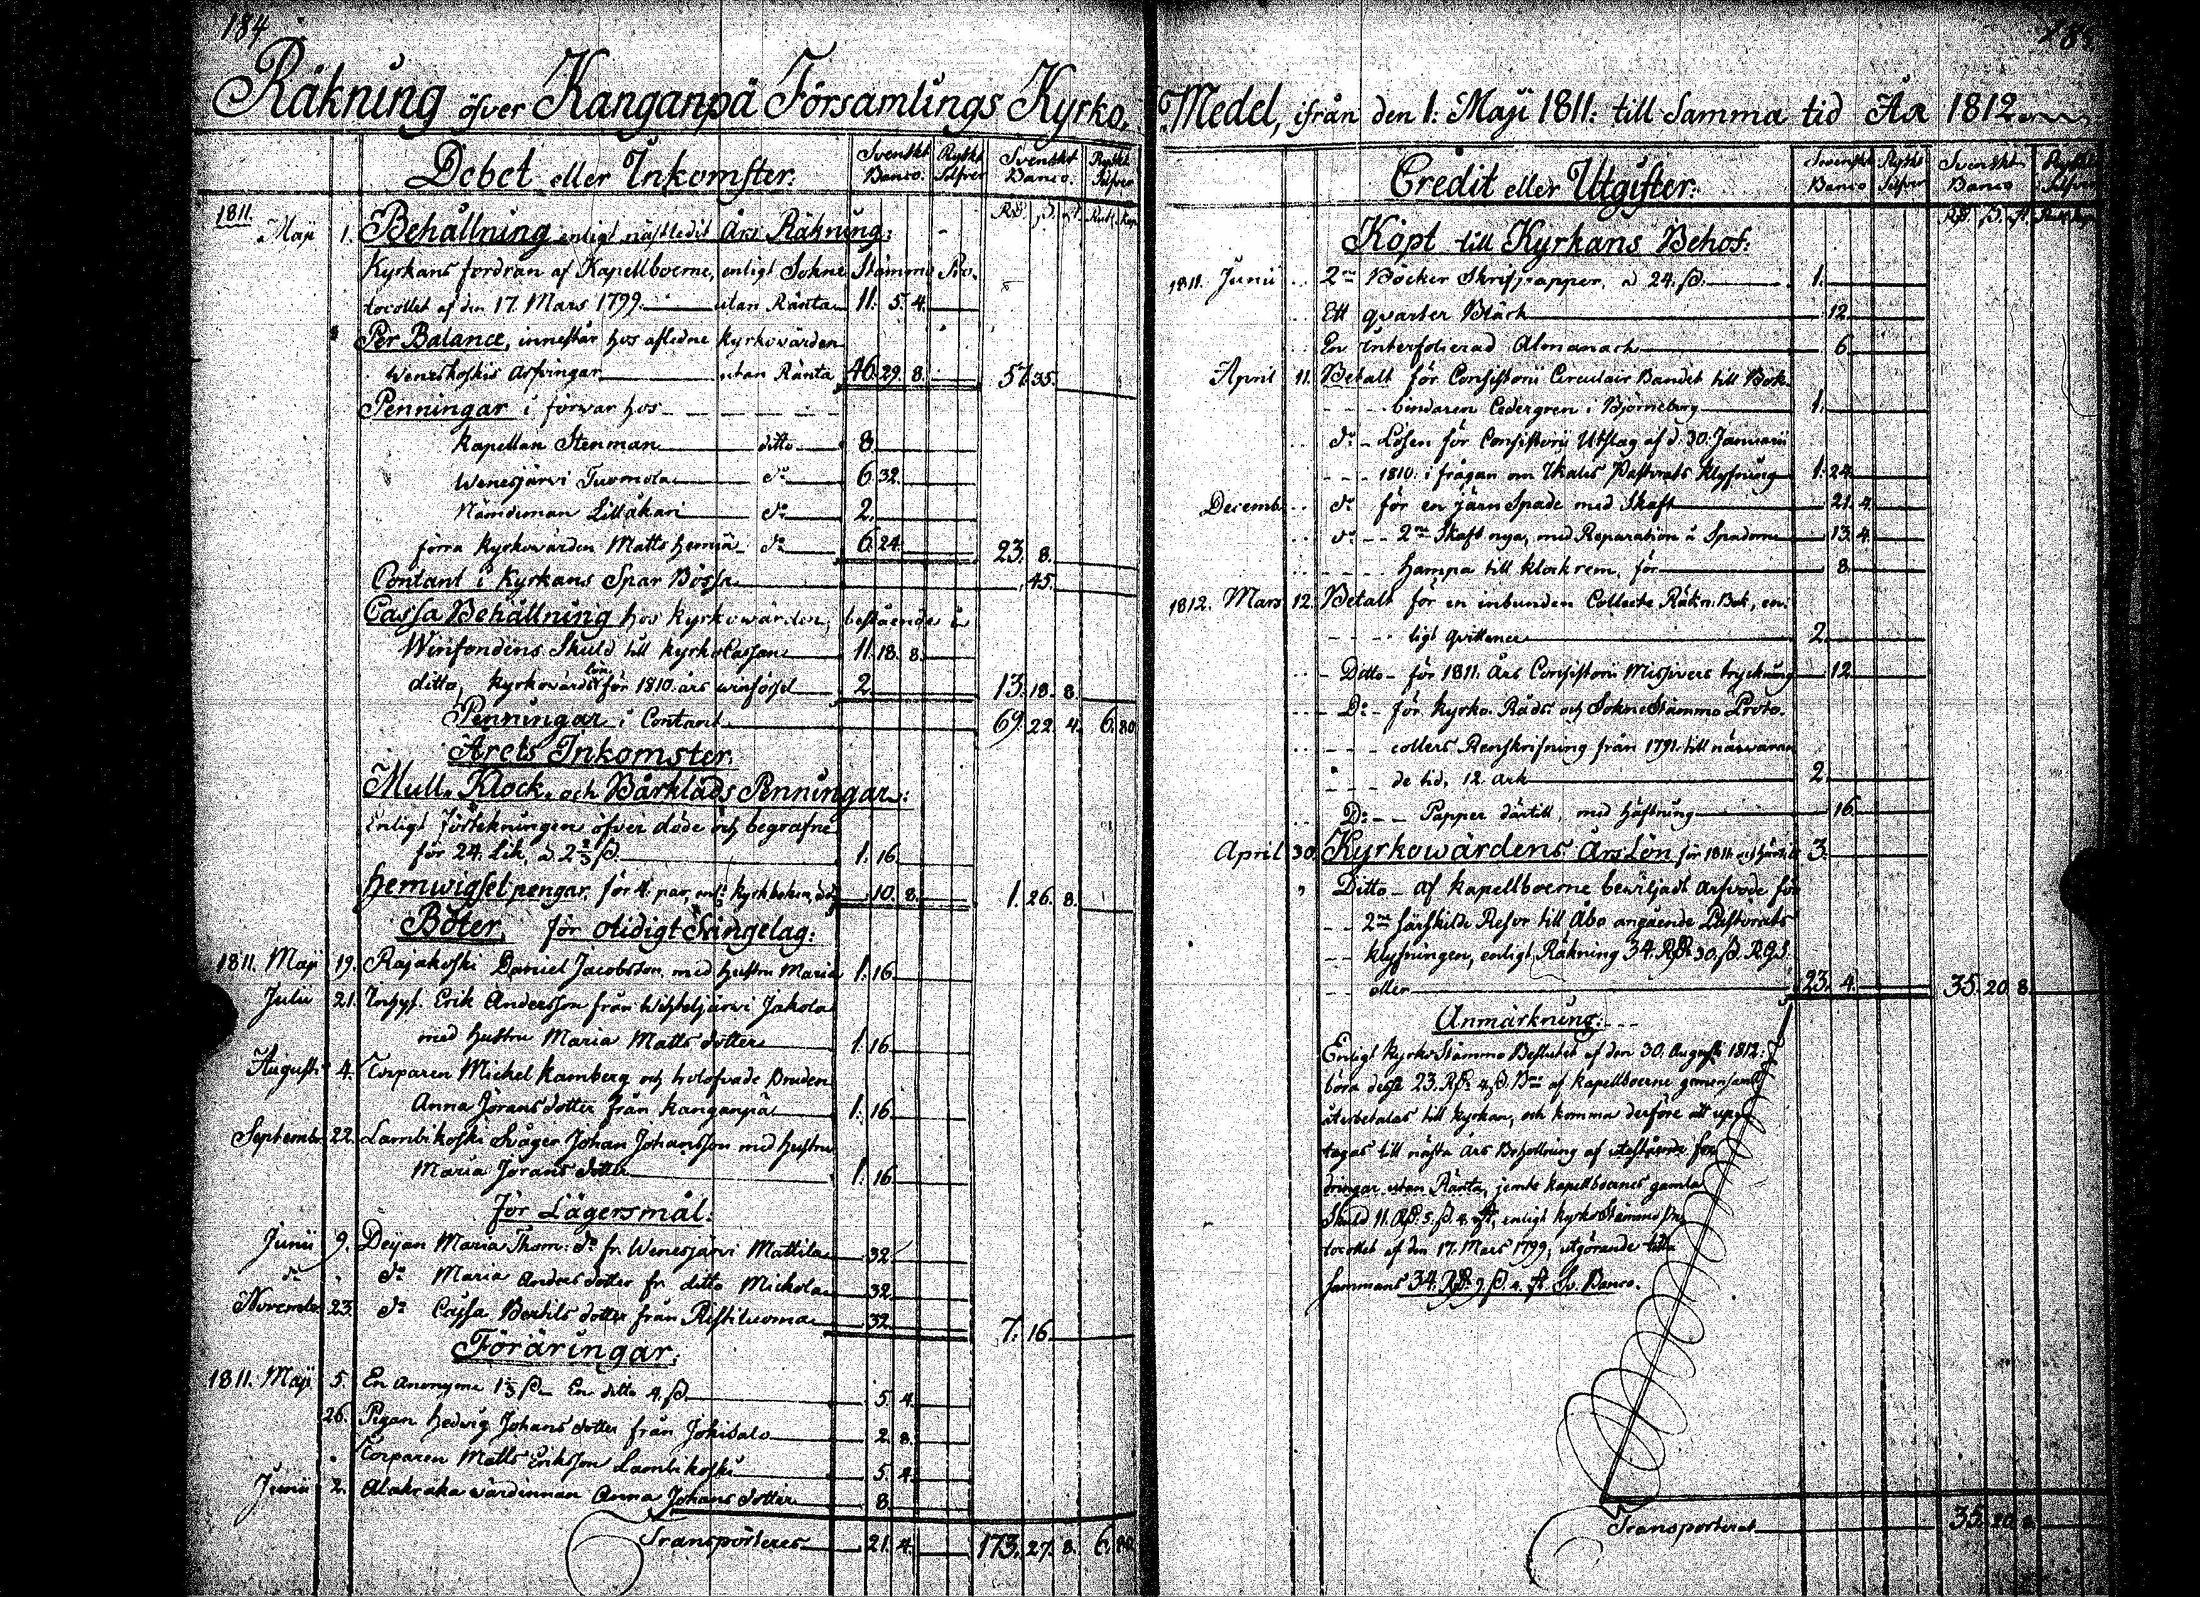 184
Räkning öfver Kanganpä Församlings Kyrko-
Debet eller Inkomster:
Svenskt Banco. Ryskt Silfver Svenskt Banco. Ryskt Silfver
Rd. ß. rst. Rub. Kop.
1811. Maji 1. Behållning enligt nästledit Års Räkning:
Kyrkans fordran af Kapellboerne, enligt Sokne Stämmo Pro-
tocollet af den 17. Mars 1799. utan Ränta 11. 5. 4.
Per Balance, innestår hos aflidne Kyrkovärden
Weneskoskis Arfvingar utan Ränta 46. 29. 8. 57. 35.
Penningar i förvar hos
Kapellan Stenman ditto 8.
Wenesjärvi Tuomola do 6. 32.
Nämdeman Lillakari do 2.
förra Kyrkovärden Matts Hemiä do 6. 24. 23. 8.
Contant i Kyrkans Spar Bössa 45.
Cassa Behållning hos Kyrkowärden, bestående i
Winfondens Skuld till KyrkoCassan 11. 18. 8.
ditto Kyrkovärds lön för 1810. års winförsel 2. 13. 18. 8.
Penningar i Contant 69. 22. 4. 6. 80
Årets Inkomster.
Mull, Klock, och Bårkläds Penningar:
Enligt förtekningen öfver döde och begrafne
för 24. Lik, à 2 2/3 ß 1. 16.
Hemwigsel pengar, för 4. par, enl: kyrkboken, 10. 8. 1. 26. 8.
Böter, för otidigt Sängelag:
1811. Maji 19. Rajakoski Daniel Jacobsson med hustru Maria 1. 16.
Julii 21. Inhys. Erik Andersson från Wihteljärvi Jakola
med hustru Maria Matts dotter 1. 16.
Augusti 4. Torparen Michel Kamberg och belofvade Bruden
Anna Jörans dotter från Kanganpä 1. 16.
Septembr. 22. Lambikoski Svåger Johan Johansson med hustru
Maria Jörans dotter 1. 16
för Lägersmål.
Junii 9. Deijan Maria Thom: dr fr. Wenesjärvi Mattila 32
do do Maria Anders dotter fr. ditto Mickola 32.
November 23. do Caijsa Bertils dotter från Ristituoma 32. 7. 16.
Föräringar.
1811. Maji 5. En Anonyme 1 1/3 ß. En ditto 4. ß. 5. 4.
26. Pigan Hedvig Johans dotter från Jokisalo 2. 8.
Torparen Matts Eriksson Lambikoski 5. 4.
Junii 2. Alakraka wärdinnan Anna Johans dotter 8.
Transporteres 21. 4. 173. 27. 8. 6. 80.
185
Medel, ifrån den 1: Maji 1811: till Samma tid År 1812.
Credit eller Utgifter:
Svenskt Banco Ryskt Silfver Svenskt Banco Ryskt Silfver
Köpt till Kyrkans Behof:
1811. Junii 2ne Böcker Skrifpapper, à 24. ß. 1.
Ett qvarter Bläck 12.
En interfolierad Almanach 6.
April 11. Betalt för Consistorii Circulair Bandet till Bok-
bindaren Cedergren i Björneborg 1.
do - Lösen för Consistorii Utslag af d. 30. Januarii
1810. i frågan om Ikalis Pastorats Klyfning 1. 24.
Decemb. do för en järn Spade med Skaft 21. 4.
do 2ne Skaft nya, med Reparation å Spadarne 13. 4.
Hampa till Klock rem, för 8.
1812. Mars 12. Betalt för en inbunden Collecte Räkn. Bok, en-
ligt qvittence 2.
Ditto - för 1811. Års Consistorii Missivers tryckning 12.
Do - för Kyrko-Råds och SokneStämmo Proto-
collers Renskrifning från 1791. till närvaran
de tid, 12. Ark 2.
Do - Papper därtill, med häftning 16.
April 30. Kyrkowärdens Års Lön för 1811. 3.
Ditto - af Kapellboerne beviljadt Arfvode för
2ne särskilde Resor till Åbo angående Pastorats
klyfningen, enligt Räkning 34. Rd. 30. ß. R.G.S.
eller 23. 4. 35. 20. 8.
Anmärkning:
Enligt KyrkoStämmo Beslutet af den 30. Augusti 1812:
böra desse 23. Rd. 4. ß. Bco af Kapellboerne gemensamt
återbetalas till Kyrkan, och komma derföre att upp-
tagas till nästa Års Behållning af utestående for-
dringar utan Ränta, jemte Kapellboernes gamla
Skuld 11. Rd. 5. ß. 4. rst, enligt KyrkoStämmo Pro-
tocollet af den 17. Mars 1799, utgörande till-
sammans 34. Rd. 9. ß. 4. rst. Sv. Banco.
Transporteras 35. 20. 8.